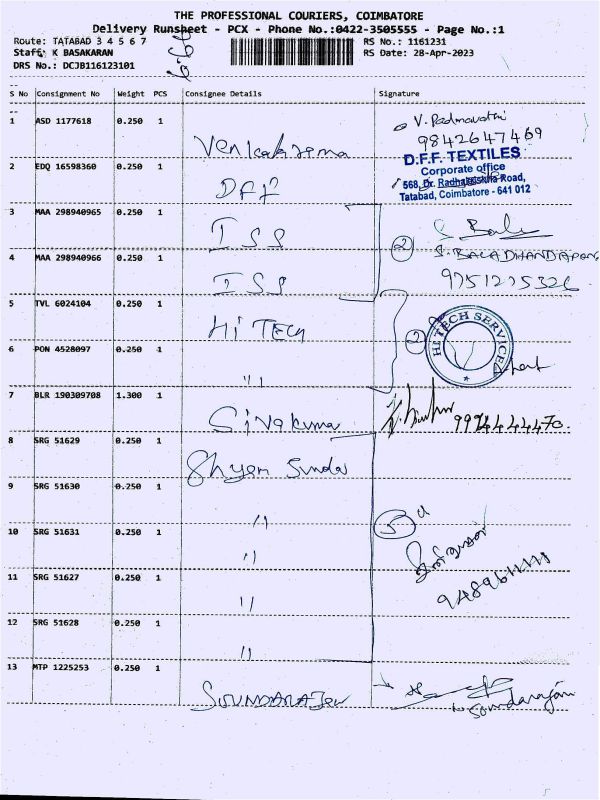 THE PROFESSIONAL COURIERS, COIMBATORE
Delivery Runsheet - PCX - Phone No.:0422-3505555 - Page No.:1
Route: TATABAD 3 4 5 6 7
RS No.: 1161231
Staff: K BASAKARAN
RS Date: 28-Apr-2023
DRS No.: DCJB116123101
S No Consignment No Weight PCS Consignee Details Signature
1 ASD 1177618 0.250 1
V. Padmavathi
9842647469
D.F.F. TEXTILES
Corporate office
568, Dr. Radhakrishna Road,
Tatabad, Coimbatore - 641 012
2 EDQ 16598360 0.250 1
DFF
3 MAA 298940965 0.250 1
ISS
Bala
4 MAA 298940966 0.250 1
ISS
2
S. BALADHANDAPANI
9751275326
5 TVL 6024104 0.250 1
HI TECH
2
HI TECH SERVICE
6 PON 4528097 0.250 1
"
7 BLR 190309708 1.300 1
Sivakuma
9994444470
8 SRG 51629 0.250 1
Shyam Sundar
9 SRG 51630 0.250 1
"
10 SRG 51631 0.250 1
"
11 SRG 51627 0.250 1
"
12 SRG 51628 0.250 1
"
13 MTP 1225253 0.250 1
SOUNDARAJan
Soundarajan